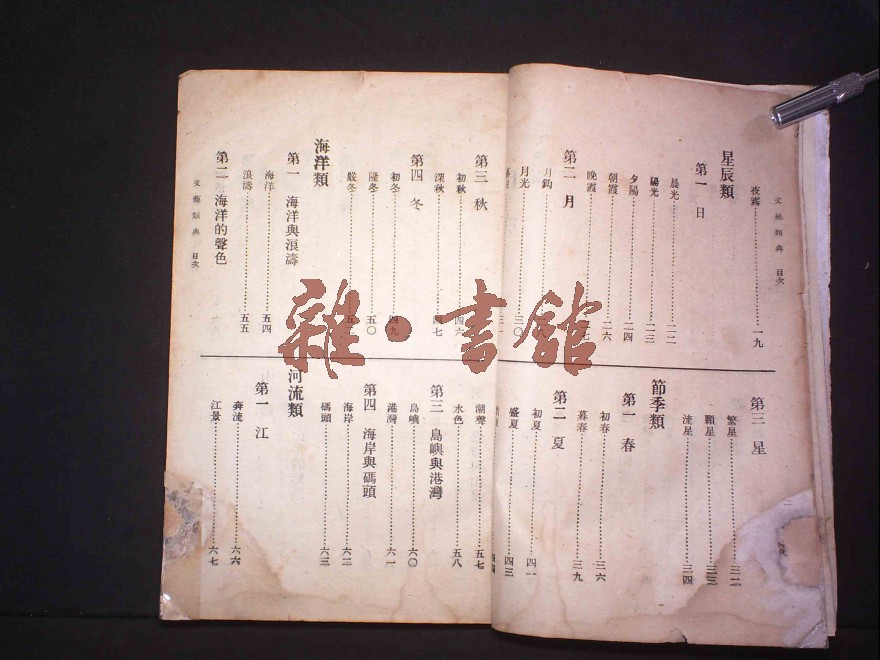 文藝類典 目次
夜霧 一九
星辰類
第一 日
晨光 二二
陽光 二三
夕陽 二四
朝霞 二六
晚霞
第二 月
月鈎
月光 三〇
第三 星
繁星 三二
顆星 三三
流星 三四
節季類
第一 春
初春 三六
暮春 三九
第二 夏
初夏 四一
盛夏 四三
第三 秋
初秋 四六
深秋 四七
第四 冬
初冬 四九
隆冬 五〇
嚴冬
海洋類
第一 海洋與浪濤
海洋 五四
浪濤 五五
第二 海洋的聲色
文藝類典 目次
潮聲 五七
水色 五八
第三 島嶼與港灣
島嶼 六〇
港灣 六一
第四 海岸與碼頭
海岸 六二
碼頭 六三
河流類
第一 江
奔流 六六
江景 六七
雜·書館